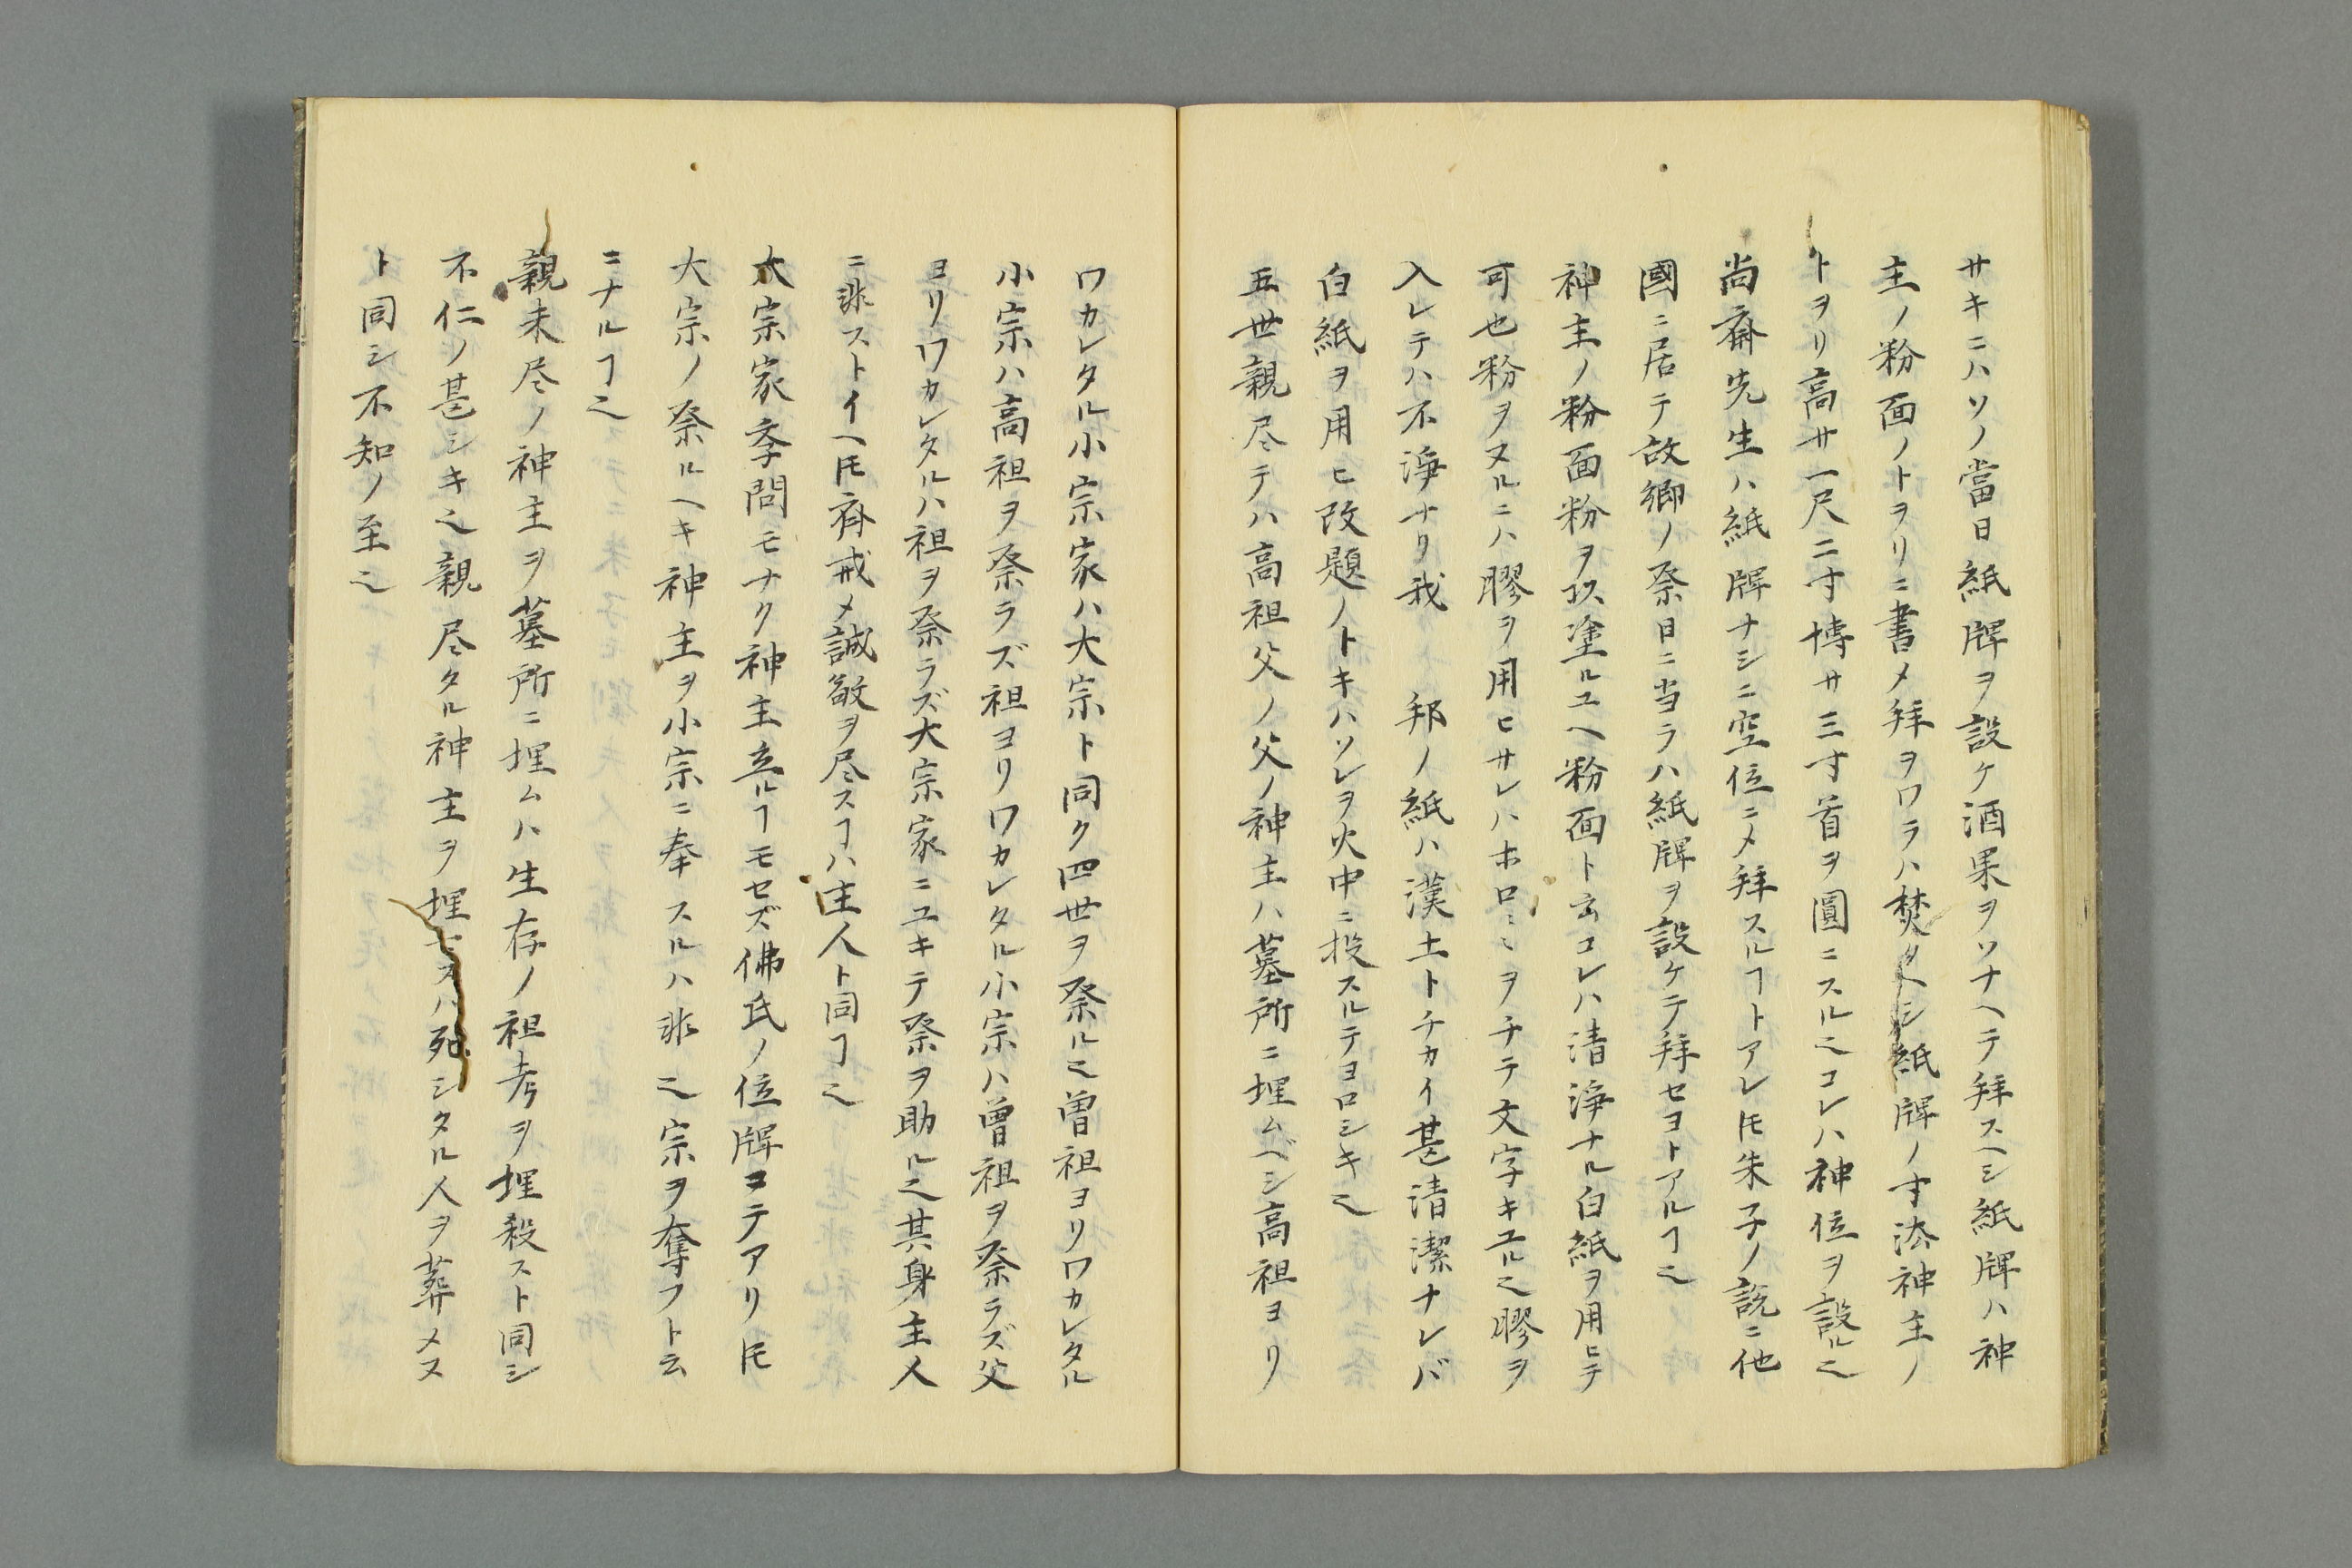 サキニハソノ當日紙牌ヲ設ケ酒果ヲソナヘテ拜スヘシ紙牌ハ神
主ノ粉面ノトヲリニ書メ拜ヲワラハ焚タヘシ紙牌ノ寸法神主ノ
トヲリ高サ一尺二寸博サ三寸首ヲ圓ニスル也コレハ神位ヲ設ル也
尚齋先生ハ紙牌ナシニ空位ニメ拜スルヿトアレ𪜈朱子ノ説ニ他
國ニ居テ故郷ノ祭日ニ当ラハ紙牌ヲ設ケテ拜セヨトアルヿ也
神主ノ粉面粉ヲ以塗ルユヘ粉面ト云コレハ清淨ナル白紙ヲ用ヒテ
可也粉ヲヌルニハ膠ヲ用ヒサレハホロミヲチテ文字キユル也膠ヲ
入レテハ不淨ナリ我　邦ノ紙ハ漢土トチカイ甚清潔ナレバ
白紙ヲ用ヒ改題ノトキハソレヲ火中ニ投スルテヨロシキ也
五世親尽テハ高祖父ノ父ノ神主ハ墓所ニ埋ムベシ高祖ヨリ
ワカレタル小宗家ハ大宗ト同ク四世ヲ祭ル也曽祖ヨリワカレタル
小宗ハ高祖ヲ祭ラズ祖ヨリワカレタル小宗ハ曽祖ヲ祭ラズ父
ヨリワカレタルハ祖ヲ祭ラズ大宗家ニユキテ祭ヲ助ル也其身主人
ニ非ストイヘ𪜈齊戒メ誠敬ヲ尽スヿハ主人ト同ヿ也
大宗家季問モナク神主立ルヿモセズ佛氏ノ位牌ヨテアリ𪜈
大宗ノ祭ルヘキ神主ヲ小宗ニ奉スルハ非也宗ヲ奪フト云
ニナルヿ也
親未尽ノ神主ヲ墓所ニ埋ムハ生存ノ祖考ヲ埋殺スト同シ
不仁ノ甚シキ也親尽タル神主ヲ埋セスハ死シタル人ヲ葬メヌ
ト同シ不知ノ至也